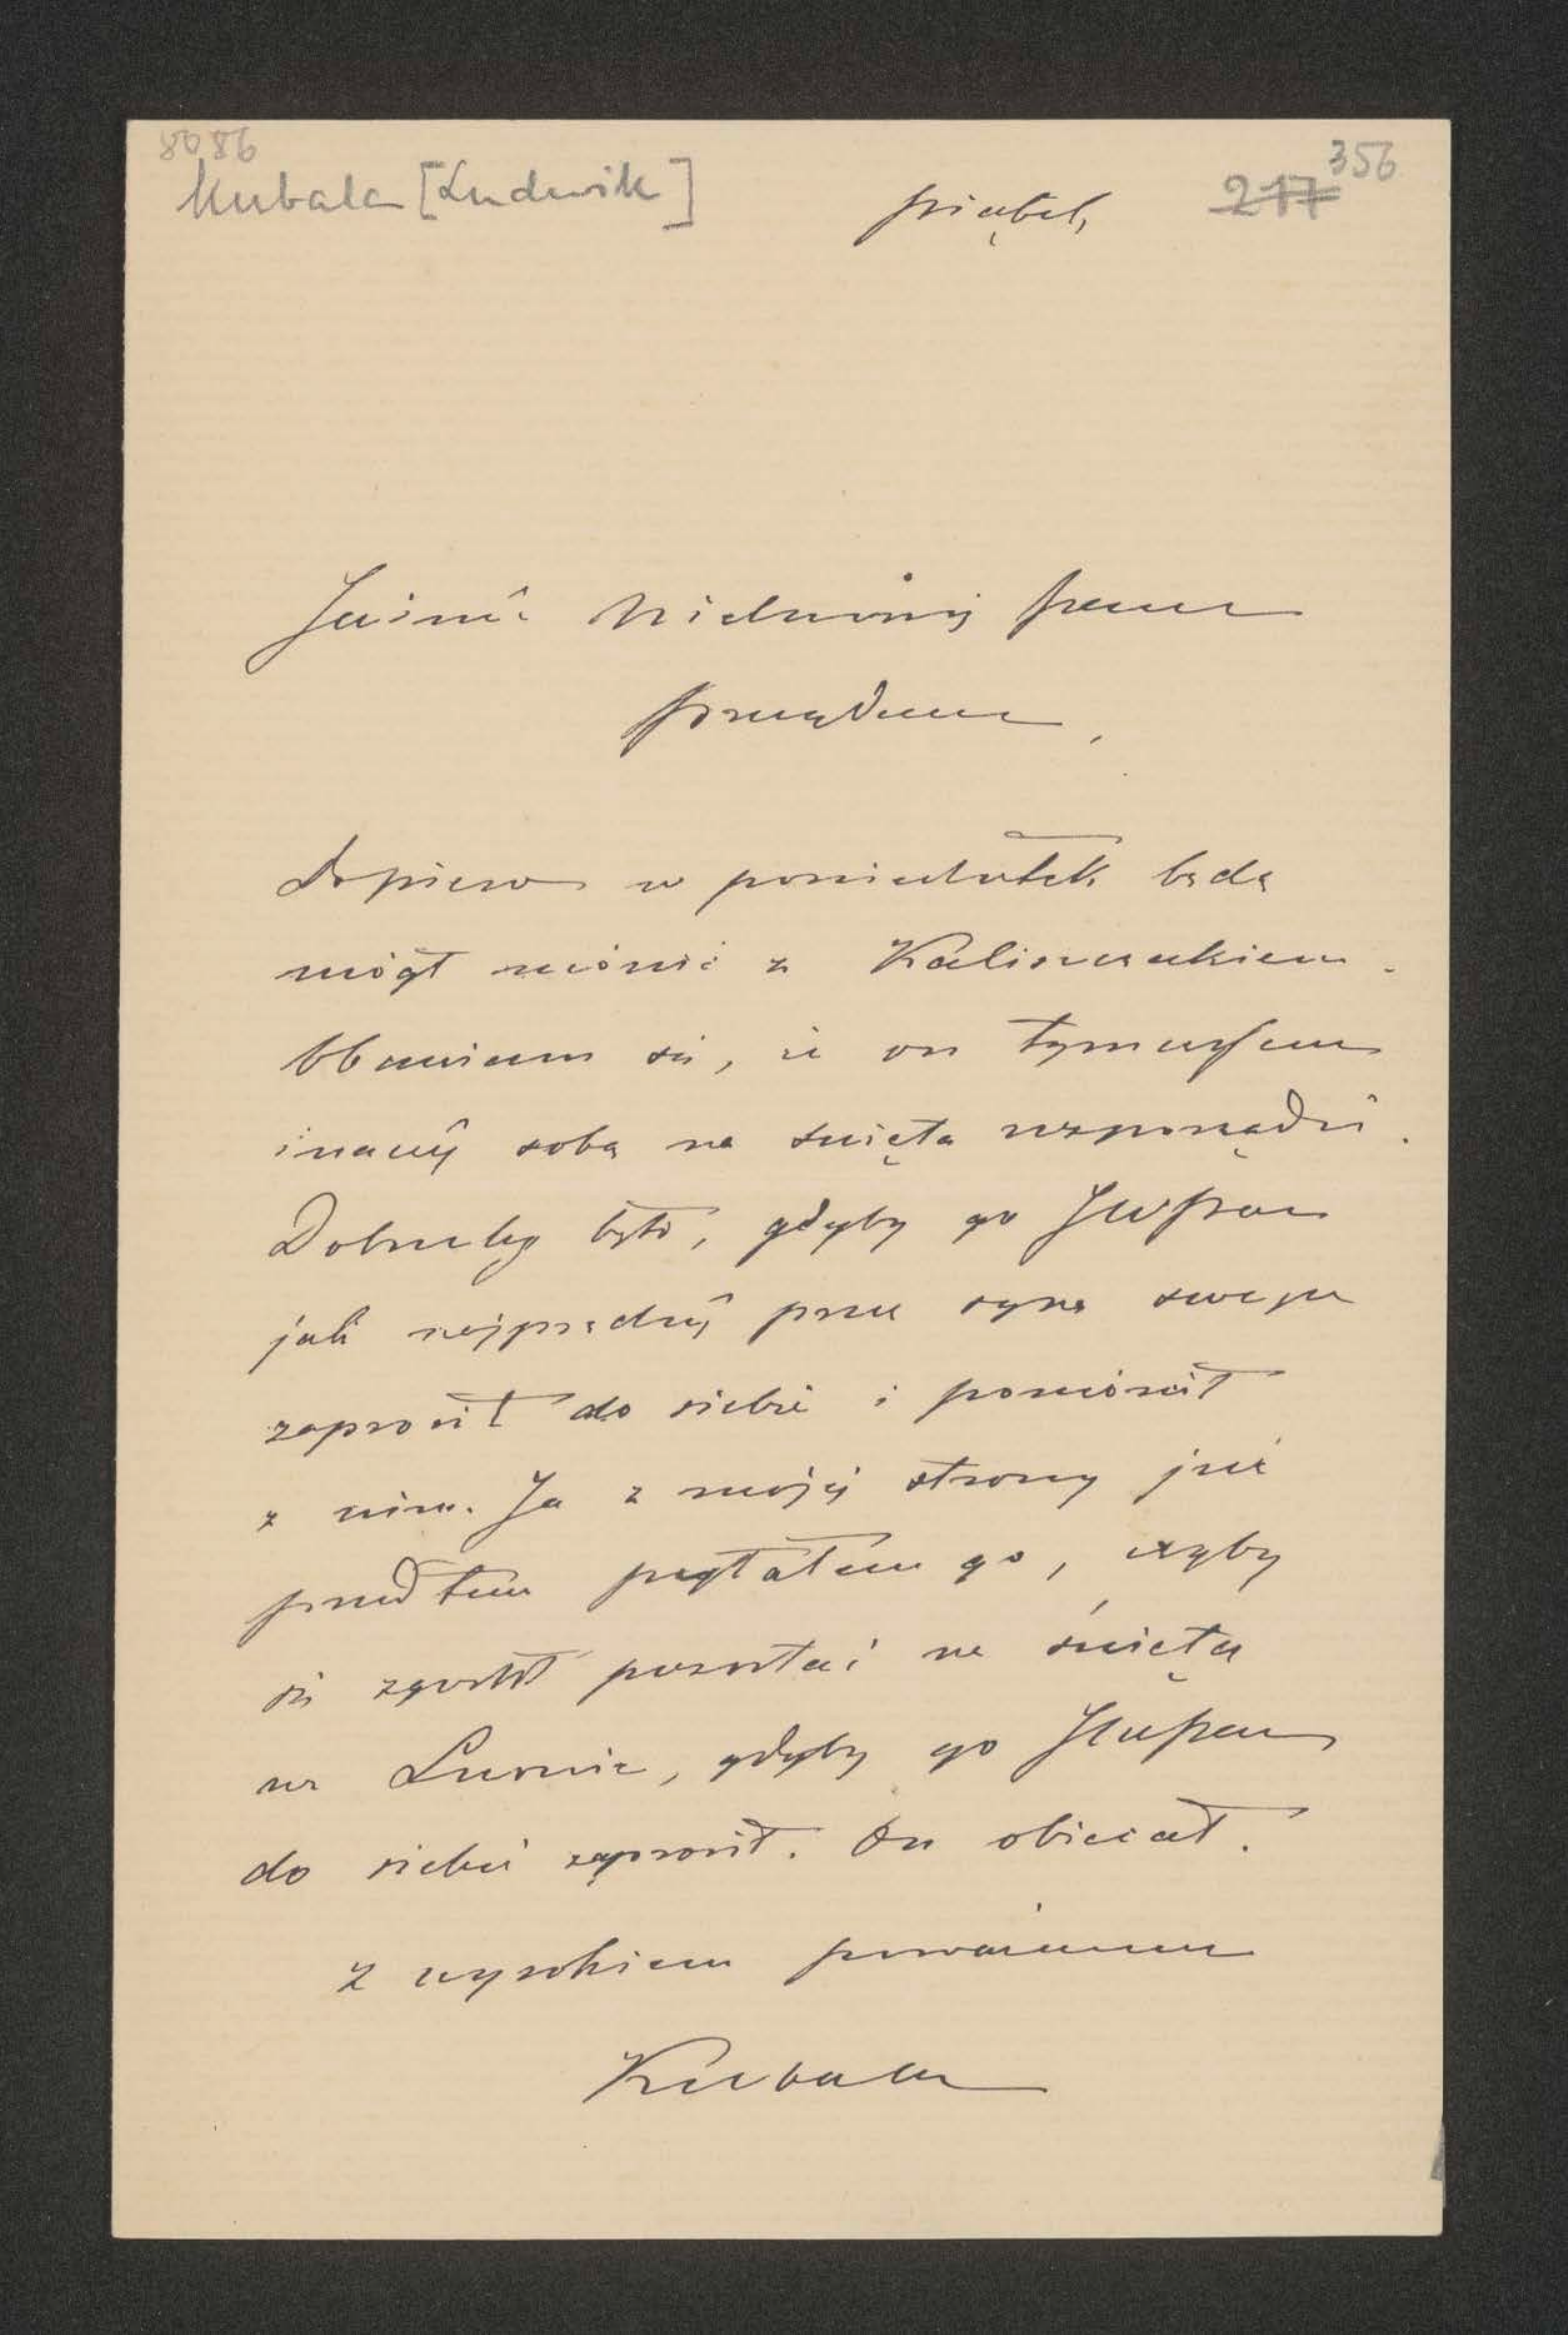 8086
Kubala [Ludwik]
piątek,
217 356
Jaśnie Wielmożny Panie
Prezydencie,
Dopiero w poniedziałek będę
mógł mówić z Kalinczukiem.
Obawiam się, że on tymczasem
inaczéj sobą na święta rozporządzi.
Dobrzeby było, gdyby go JWPan
jak najprędzéj przez syna swego
zaprosił do siebie i pomówił
z nim. Ja z mojej strony już
przedtem pytałem go, czyby
się zgodził pozostać na święta
we Lwowie, gdyby go JWPan
do siebie zaprosił. On obiecał.
Z wysokiem poważaniem
Kubala